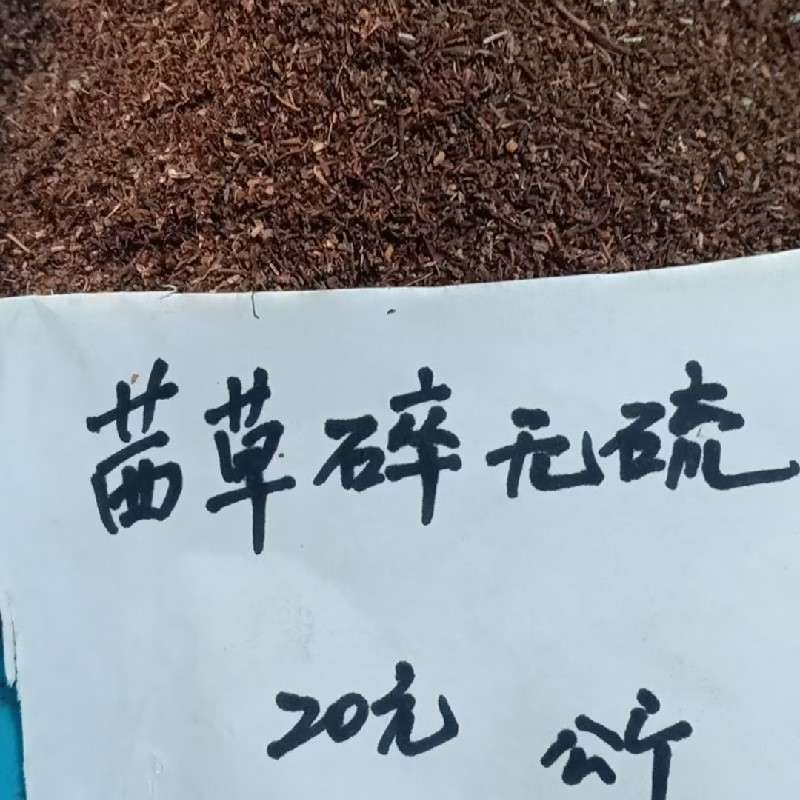 茜草碎无硫
20元 公斤